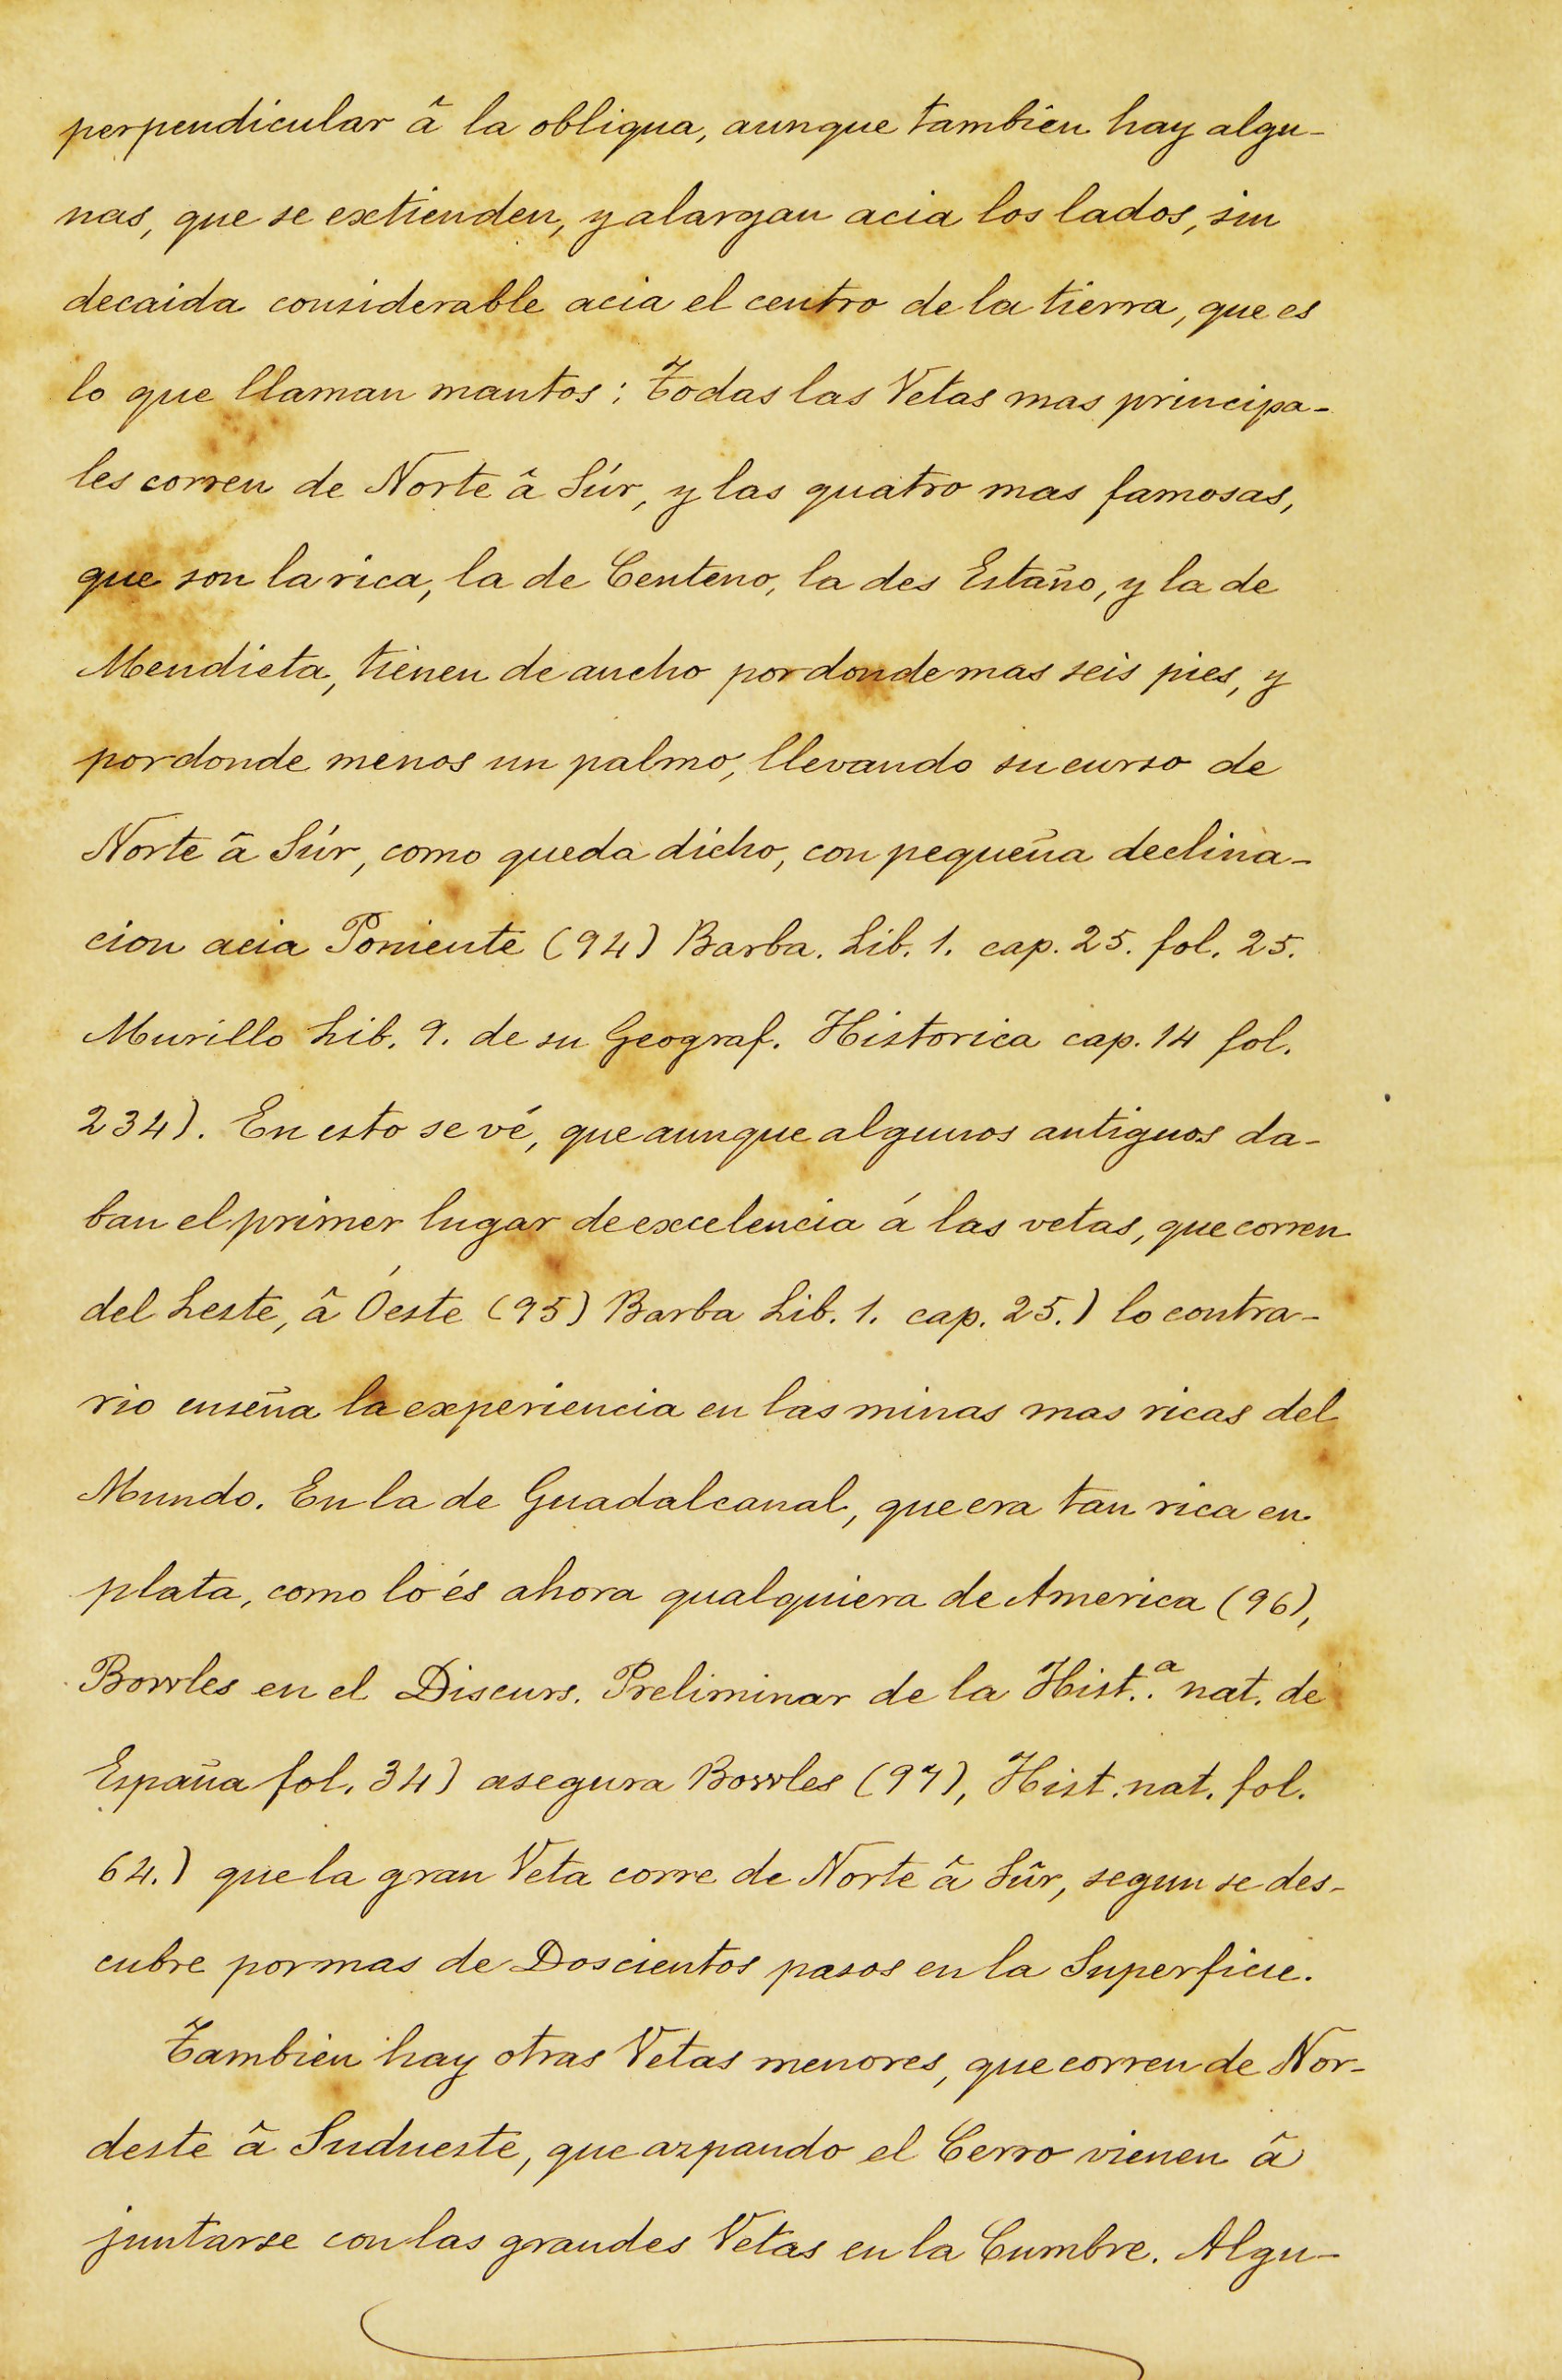 perpendicular â la obliqua, aunque tambien hay algu-
nas, que se extienden, y alargan acia los lados, sin
decaida considerable acia el centro de la tierra, que es
lo que llaman mantos: Todas las Vetas mas principa-
les corren de Norte â Súr, y las quatro mas famosas,
que son la rica, la de Centeno, la des Estaño, y la de
Mendieta, tienen de ancho por donde mas seis pies, y
por donde menos un palmo, llevando su curso de
Norte â Súr, como queda dicho, con pequeña declina-
cion acia Poniente (94) Barba. Lib. 1. cap. 25. fol. 25.
Murillo Lib. 9. de su Geograf. Historica cap. 14 fol.
234). En esto se vé, que aunque algunos antiguos da-
ban el primer lugar de excelencia á las vetas, que corren
del Leste, â Óeste (95) Barba Lib. 1. cap. 25.) lo contra-
rio enseña la experiencia en las minas mas ricas del
Mundo. En la de Guadalcanal, que era tan rica en
plata, como lo és ahora qualquiera de America (96),
Bowles en el Discurs. Preliminar de la Hist.ª nat. de
España fol. 34) asegura Bowles (97), Hist. nat. fol.
64.) que la gran Veta corre de Norte â Sûr, segun se des-
cubre por mas de Doscientos pasos en la Superficie.
Tambien hay otras Vetas menores, que corren de Nor-
deste â Sudueste, que arpando el Cerro vienen â
juntarse con las grandes Vetas en la Cumbre. Algu-